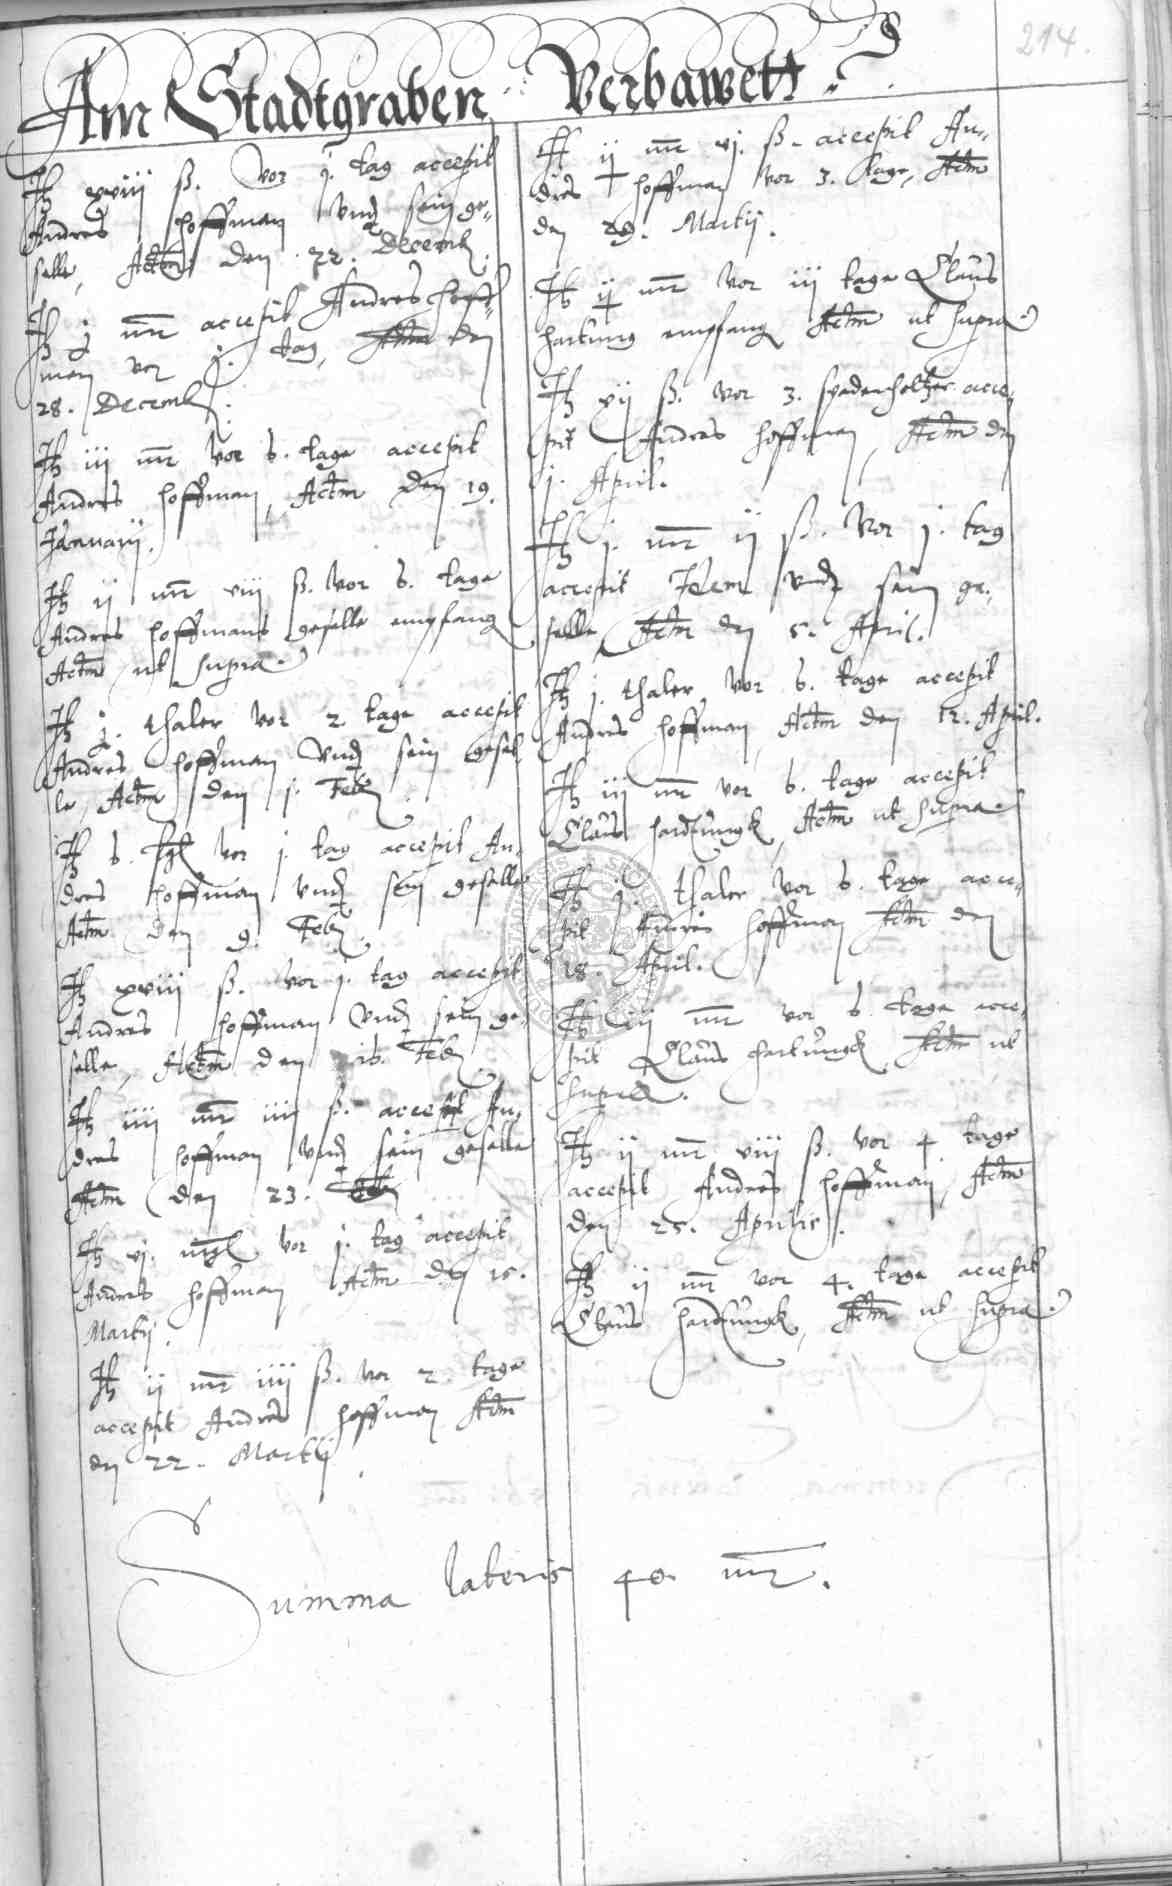 214.
Am Stadtgraben Verbawett
Jtz xviij ß. vor j. tag accepit
Andres hoffman vnd sein ge„
selle, Actm den 22. Decemb.
Jtz j mr accepit Andres hoff„
man vor j. tag, Actm den
28. Decemb.
Jtz iij mr vor 6. tage accepit
Andres hoffman, Actm den 19.
Januarij.
Jtz ij mr viij ß. vor 6. tage
Andres hoffmans geselle empfang
Actm ut supra.
Jtz j. thaler vor 2. tage accepit
Andres hoffman vnd sein gesel
le, Actm den j. Feb
Jtz 6. vor j. tag accepit An„
dres hoffman vnd sein geselle
Actm den 9. Feb.
Jtz xviij ß. vor j. tag accepit
Andres hoffman vnd sein ge„
selle, Actm den 16. Feb
Jtz iiij mr iij ß. accepit An„
dres hoffman vnd sein geselle
Actm den 23. Feb
Jtz vj. vor j. tag accepit
Andres hoffman Actm den 15.
Martij.
Jtz ij mr iiij ß. vor 2. tage
accepit Andres hoffman Actm
den 22. Martij
Jtz ij mr vj. ß. accepit An„
dres hoffman vor 3. tage, Actm
den 29. Martij.
Jtz ij mr vor iij tage Claus
hartung empfang Actm ut supra
Jtz vij ß. vor 3. acce„
pit Andres hoffman, Actm den
j. April.
Jtz j. mr ij ß. vor j. tag
accepit Idem vnd sein ge„
selle, Actm den 5. April.
Jtz j. thaler vor 6. tage accepit
Andres hoffman, Actm den 12. April.
Jtz iij mr vor 6. tage accepit
Claus hardtungk, Actm ut supra.
Jtz j. thaler vor 6. tage acce„
pit Andres hoffman Actm den
18. April.
Jtz iij mr vor 6. tage acce„
pit Claus hartungk, Actm ut
supra.
Jtz ij mr viij ß. vor 4 tage
accepit Andres hoffman, Actm
den 25. Aprilis.
Jtz ij mr vor 4. tage accepit
Claus hardtungk, Actm ut supra.
Summa lateris 40 mr.